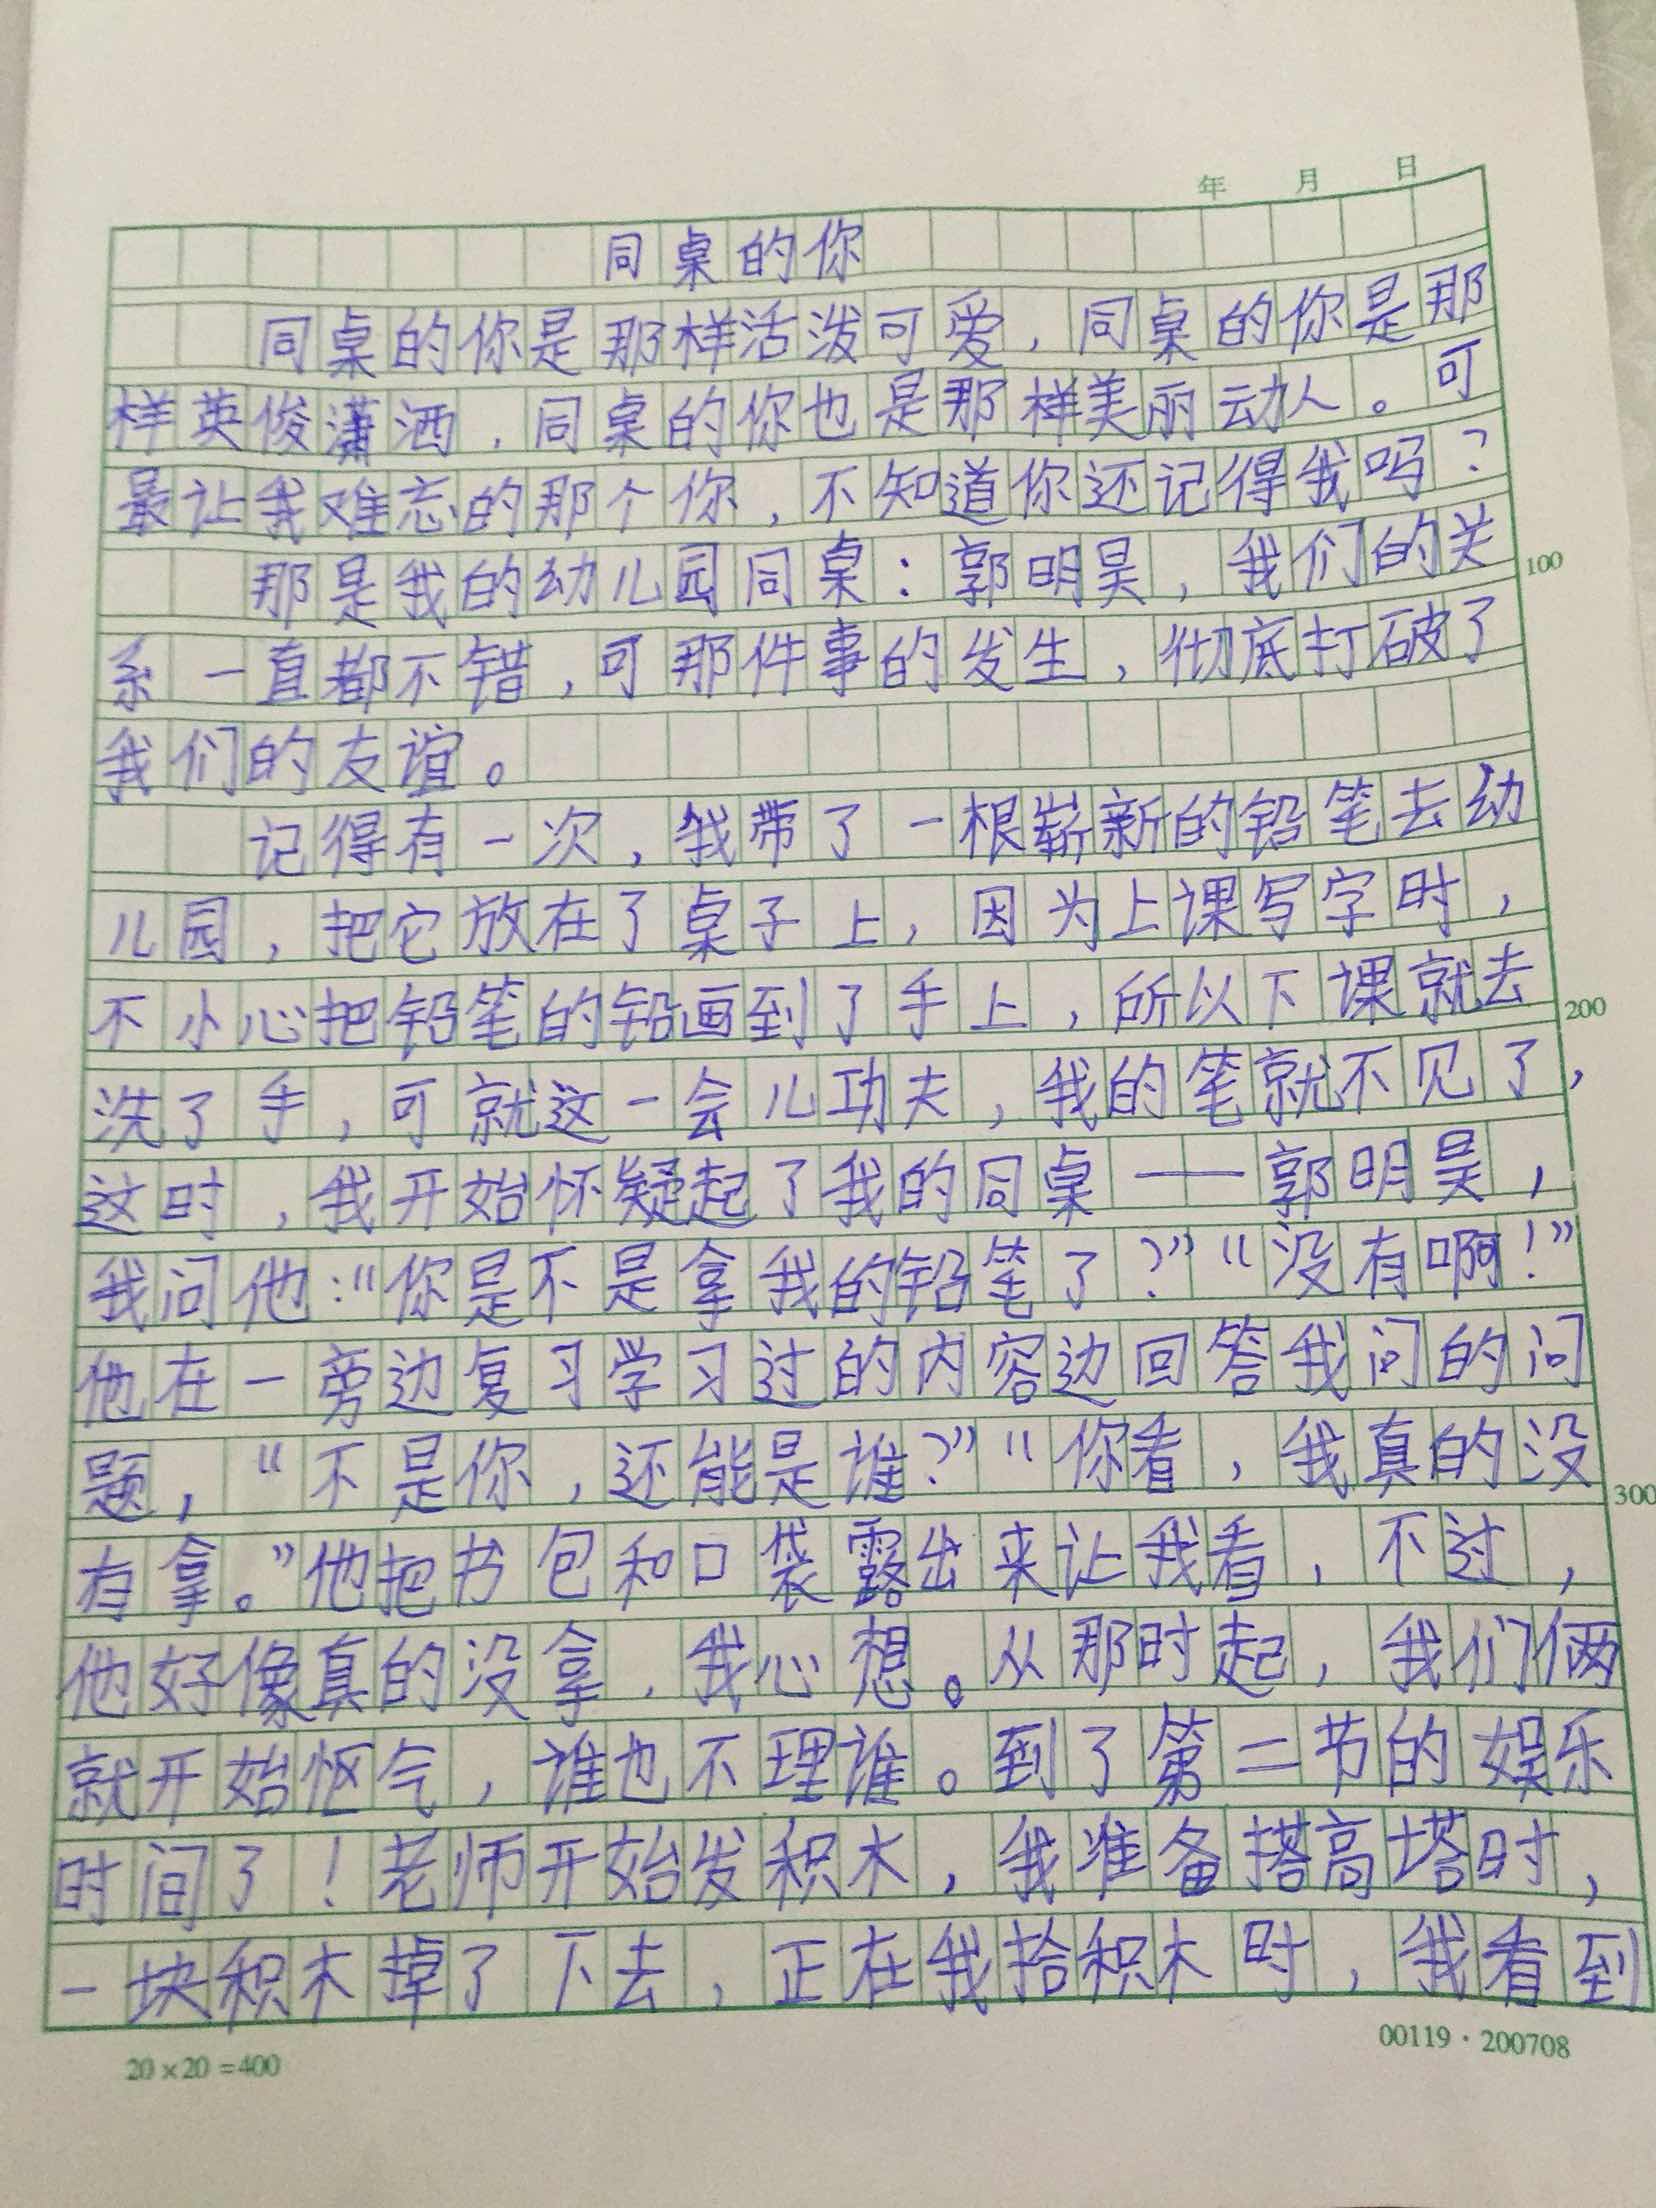 年 月 日
同桌的你
同桌的你是那样活泼可爱，同桌的你是那
样英俊潇洒，同桌的你也是那样美丽动人。可
最让我难忘的那个你，不知道你还记得我吗？
那是我的幼儿园同桌：郭明昊，我们的关
100
系一直都不错，可那件事的发生，彻底打破了
我们的友谊。
记得有一次，我带了一根崭新的铅笔去幼
儿园，把它放在了桌子上，因为上课写字时，
不小心把铅笔的铅画到了手上，所以下课就去
200
洗了手，可就这一会儿功夫，我的笔就不见了，
这时，我开始怀疑起了我的同桌——郭明昊，
我问他：“你是不是拿我的铅笔了？”“没有啊！”
他在一旁边复习学习过的内容边回答我问的问
题，“不是你，还能是谁？”“你看，我真的没
300
有拿。”他把书包和口袋露出来让我看，不过，
他好像真的没拿，我心想。从那时起，我们俩
就开始怄气，谁也不理谁。到了第二节的娱乐
时间了！老师开始发积木，我准备搭高塔时，
一块积木掉了下去，正在我拾积木时，我看到
20×20=400
00119·200708